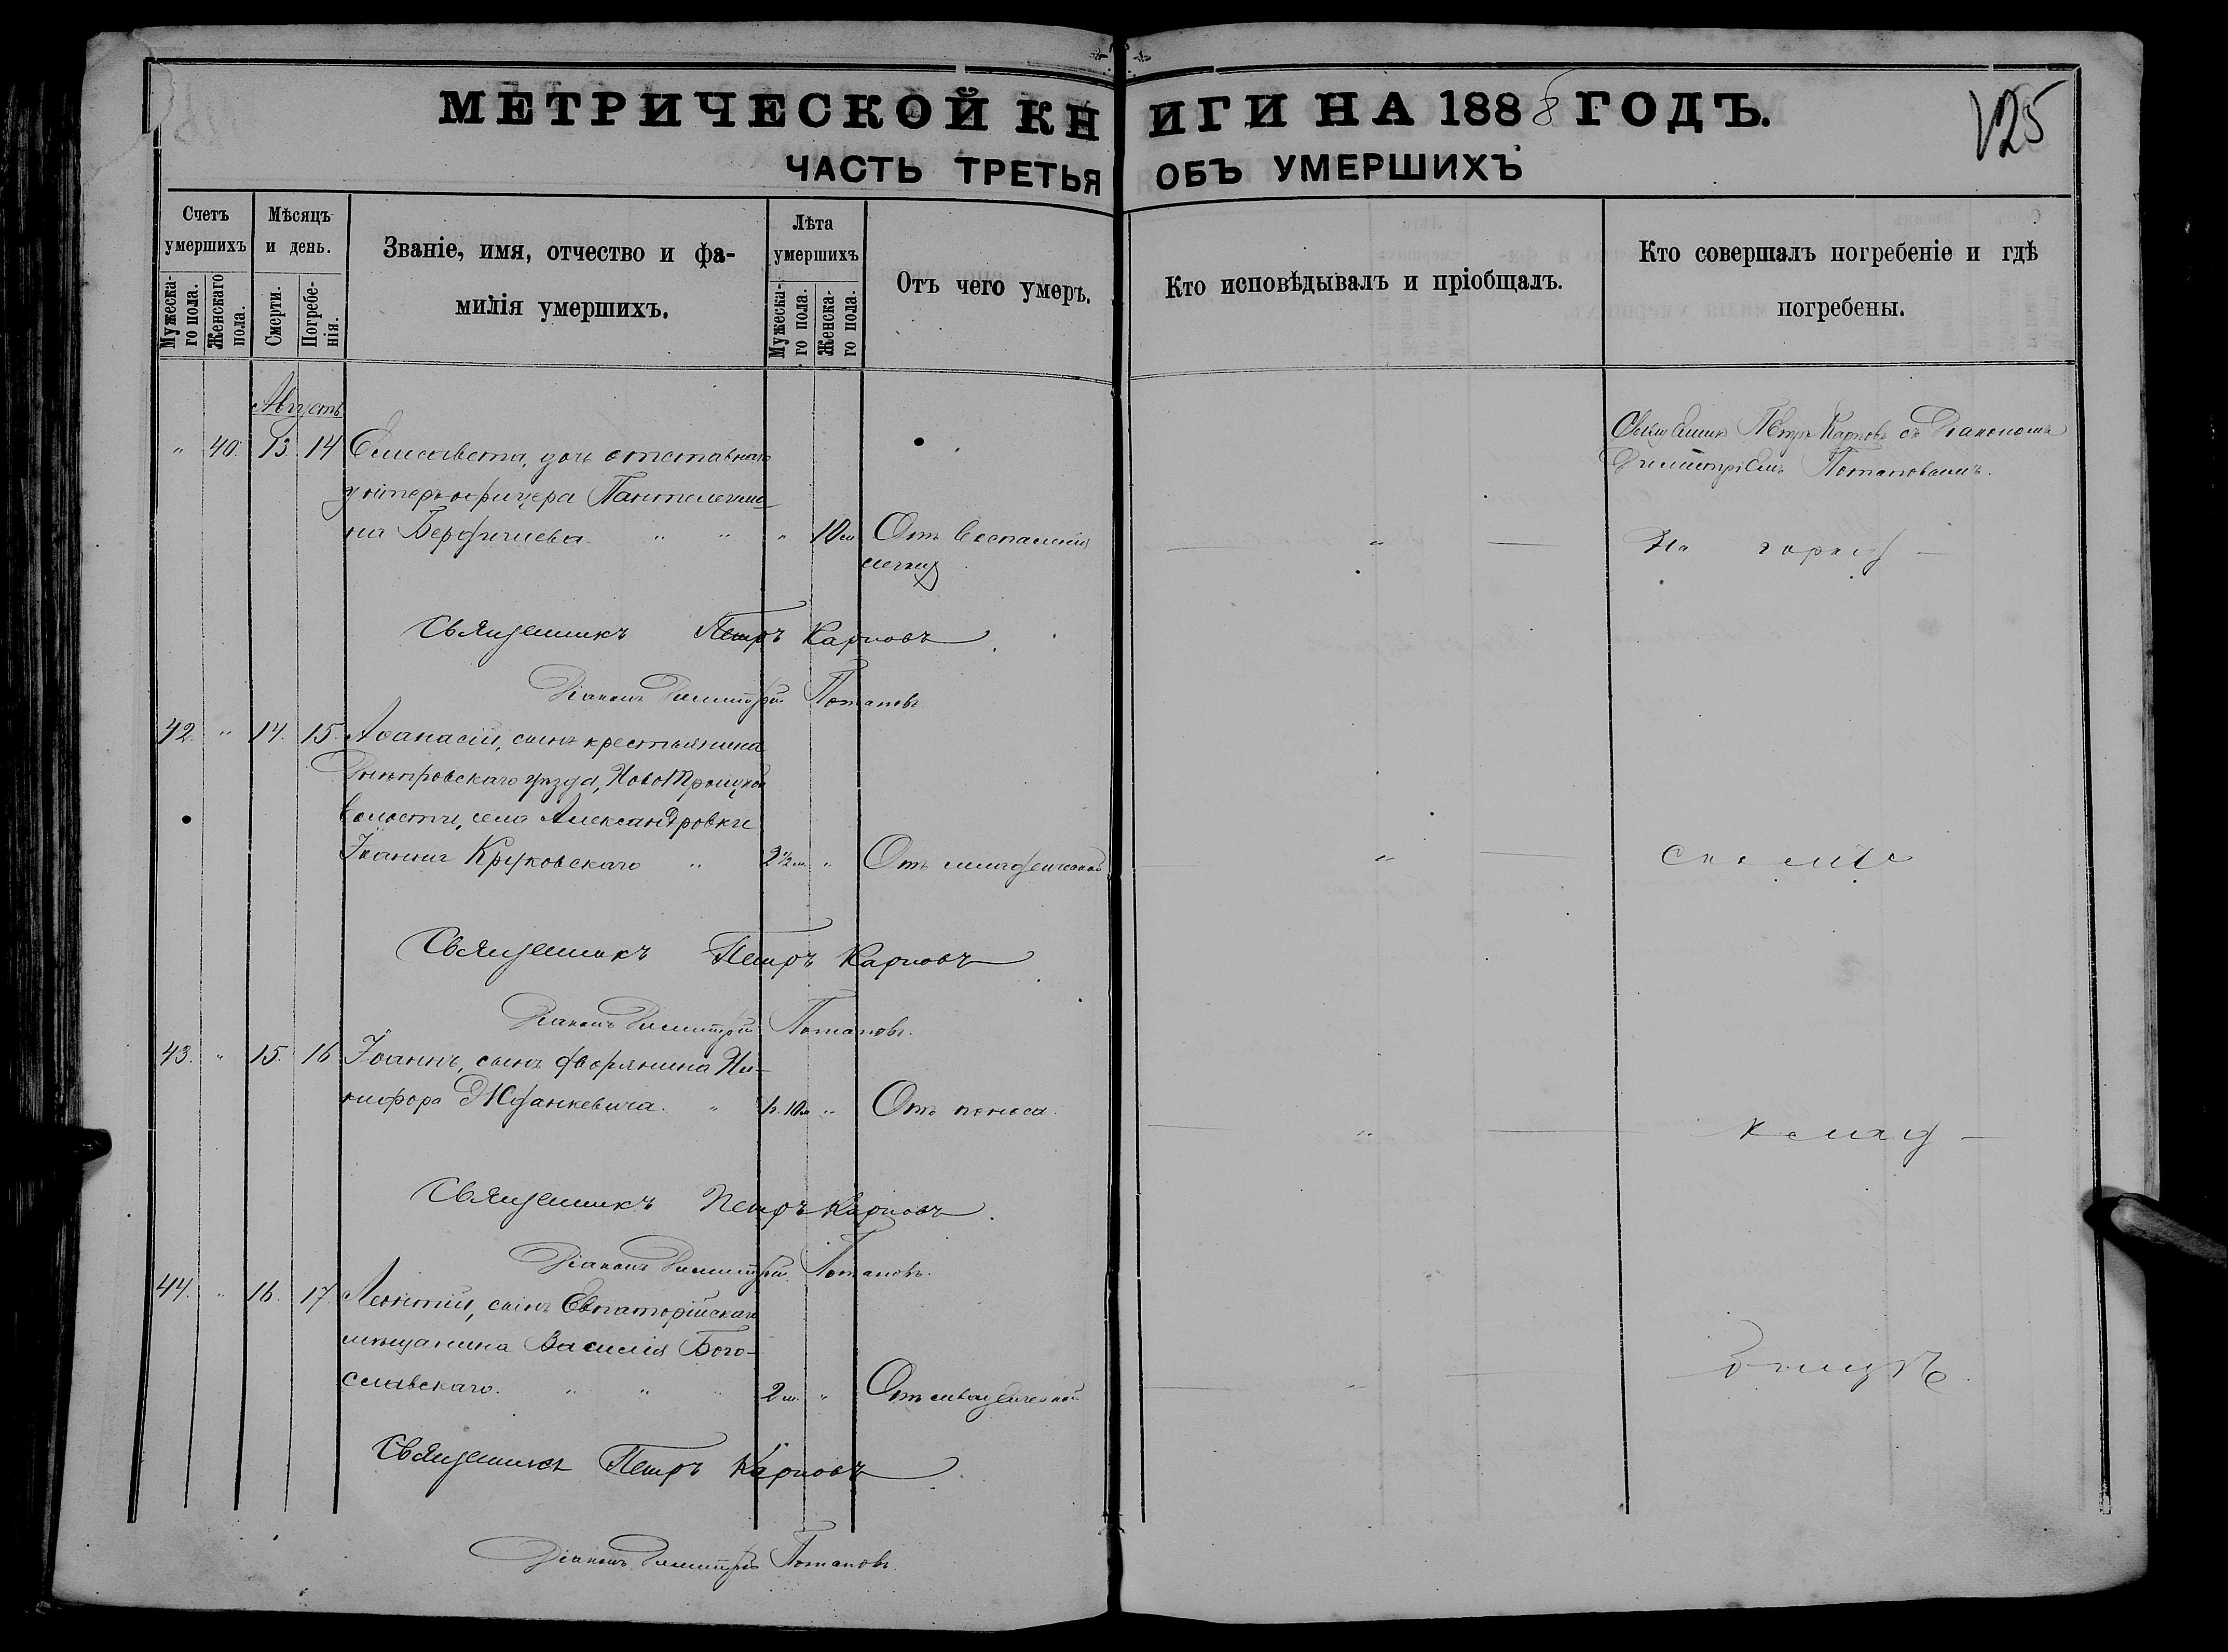 МЕТРИЧЕСКОЙ КНИГИ НА 1888 ГОДЪ.
125
ЧАСТЬ ТРЕТЬЯ ОБЪ УМЕРШИХЪ
Счетъ умершихъ
Мужеска-го пола.
Женскаго пола.
Мѣсяцъ и день.
Смерти.
Погребе-нія.
Званіе, имя, отчество и фа-
милія умершихъ.
Лѣта умершихъ
Мужеска-го пола.
Женска-го пола.
Отъ чего умеръ.
Кто исповѣдывалъ и пріобщалъ.
Кто совершалъ погребеніе и гдѣ
погребены.
Августъ
" 40. 13 14 Елисавета, дочь отставнаго
унтеръ-офицера Пантелеимо-
на Бердичева " " " 10 м Отъ воспаленія
легкихъ
Священникъ Петръ Карповъ съ Діакономъ
Димитріемъ Потаповымъ.
На город
Священникъ Петръ Карповъ
Діаконъ Димитрій Потаповъ
42. " 14. 15. Аѳанасій, сынъ крестьянина
Днѣпровскаго уѣзда, НовоТроицкой
волости, села Александровки
Іоанна Круковскаго " 2 1/2 м. " Отъ младенческой
"
Священникъ Петръ Карповъ
Діаконъ Димитрій Потаповъ.
43. " 15. 16 Іоаннъ, сынъ дворянина Ни-
кифора Жданкевича. " 1 г. 10 м " Отъ поноса.
"
Священникъ Петръ Карповъ
Діаконъ Димитрій Потаповъ.
44. " 16. 17. Леонтій, сынъ Евпаторійскаго
мѣщанина Василія Бого-
славскаго. " " " 2 м. " Отъ младенческой
"
Священникъ Петръ Карповъ
Діаконъ Димитрій Потаповъ.